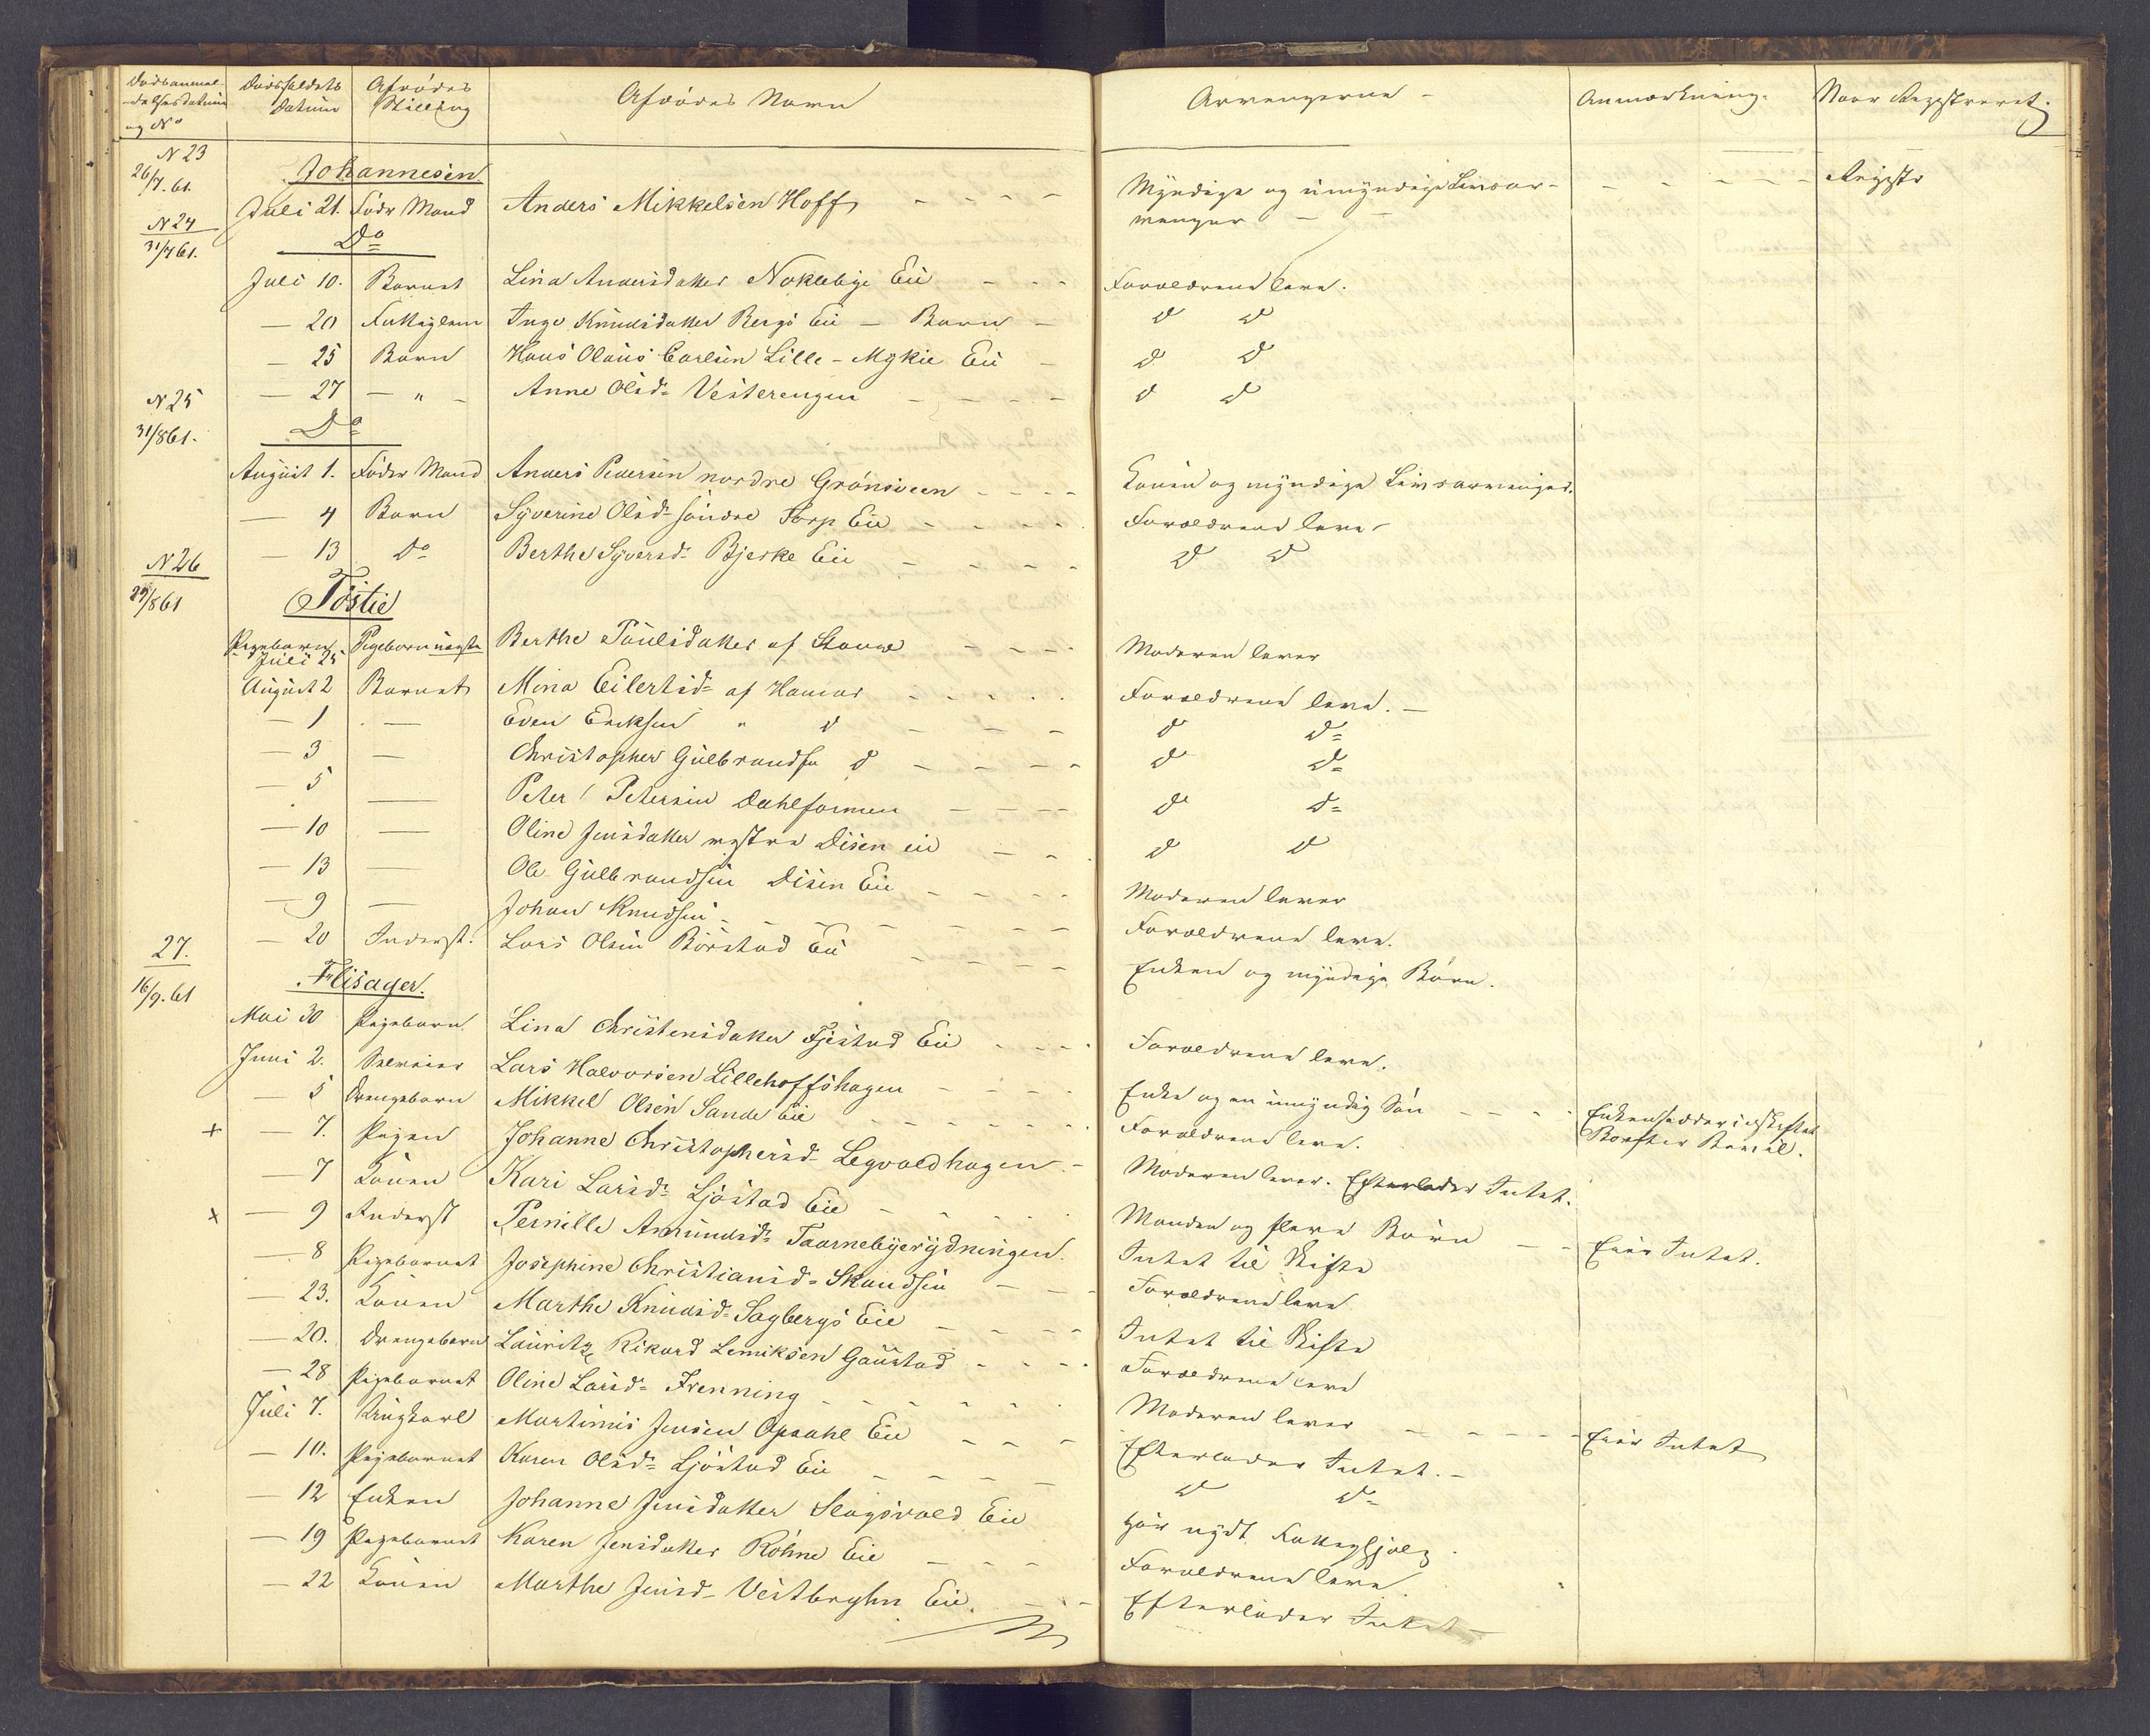 Dødsanmel-
-delsesdatum
og No
Dødsfaldets
Datum
Afdødes
Stilling
Afdødes Navn
Arvingerne -
Anmærkning.
Naar Registreret.
N 23
26/7.61.
Johannesen
Juli 21. Føder Mand Anders Mikkelsen Hoff - - - - Myndige og umyndige Livsar- - - - - - Registr
vinger -
N 24
31/7 61.
Do
Juli 10. Barnet Lina Andersdatter Noklebye Eie - - - Forældrene leve.
- 20 Fattiglem Inge Knudsdatter Bergs Eie - Barn - d d
- 25 Barn Hans Olaus Carlsen Lille-Mykie Eie - d d
- 27 - " - Anne Olsd. Vesterengen - - - - d d
N 25
31/8 61.
Do
August 1. Føder Mand Anders Pedersen nordre Grønsveen - - - - Konen og myndige Livsarvinger.
- 4 Barn Syverine Olsd. søndre Torp Eie - - - - Forældrene leve
- 13 Do Berthe Syversd. Bjerke Eie - - - - d d
N 26
29/8 61
Tostie
Pigebarn
Juli 25
Berthe Paulsdatter af Stange - - - - Moderen lever
August 2 Barnet Mina Eilertsd. af Hamar - - - - Forældrene leve. -
- 1 - Even Eriksen " d - - - d d
- 3 - Christopher Gulbrandsen d - - - - d d
- 5 - Peter Petersen Dahlsennen - - - - d d
- 10 - Oline Jensdatter vestre Disen eie - - - d d
- 13 - Ole Gulbrandsen Disen Eie - - - - Moderen lever
- 9 - Johan Knudsen - - - - Forældrene leve.
- 20 Inderst. Lars Olsen Børstad Eie - - - - Enken og myndige Børn.
27.
16/9.61
Flisager.
Mai 30 Pigebarn Lina Christensdatter Fjestad Eie - - - Forældrene leve.
Juni 2. Selveier Lars Halvorsen Lillehoffshagen - - - - Enke og en umyndig Søn - - - - Enken sidder i uskiftet
- 5 Drengebarn Mikkel Olsen Sande Eie - - - - Forældrene leve.
+ - 7. Pigen Johanne Christophersd. Legvoldhagen - Moderen lever. Efterlader Intet.
- 7 Konen Kari Larsd. Ljøstad Eie - - - - Manden og flere Børn - - Eier Intet.
x - 9 Inderst Pernille Amundsd. Taarnebyerydningen. Intet til Skifte
- 8 Pigebarnet Josephine Christiansd. Skandsen - - - Forældrene leve
- 23. Konen Marthe Knudsd. Sagbergs Eie - - - - Intet til Skifte
- 20. Drengebarn Lauritz Rikard Lemiksen Gaustad - - - - Forældrene leve
- 28 Pigebarnet Oline Larsd. Frenning - - - - Moderen lever - - - - Eier Intet
Juli 7. Ungkarl Martinus Jensen Opsahl Eie - - - Efterlader Intet. -
- 10. Pigebarnet Karen Olsd. Ljøstad Eie - - - - d d
- 12 Enken Johanne Jensdatter Slagsvold Eie har nydt Fattighjælp.
- 19 Pigebarnet Karen Jensdatter Rohne Eie - - - Forældrene leve.
- 22 Konen Marthe Jensd. Vestbyhn Eie. - - - Efterlader Intet -